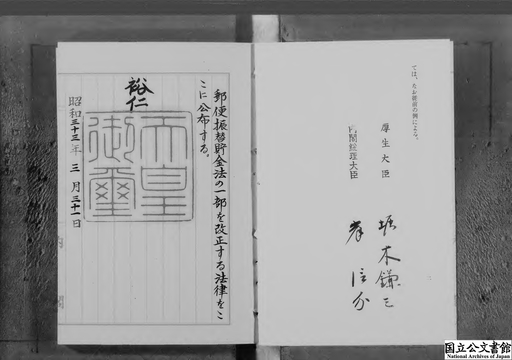 ては、なお従前の例による。
厚生大臣
堀木鎌三
内閣総理大臣
岸信介
郵便振替貯金法の一部を改正する法律をこ
こに公布する。
裕仁
天皇
御璽
昭和三十三年三月三十一日
国立公文書館
National Archives of Japan